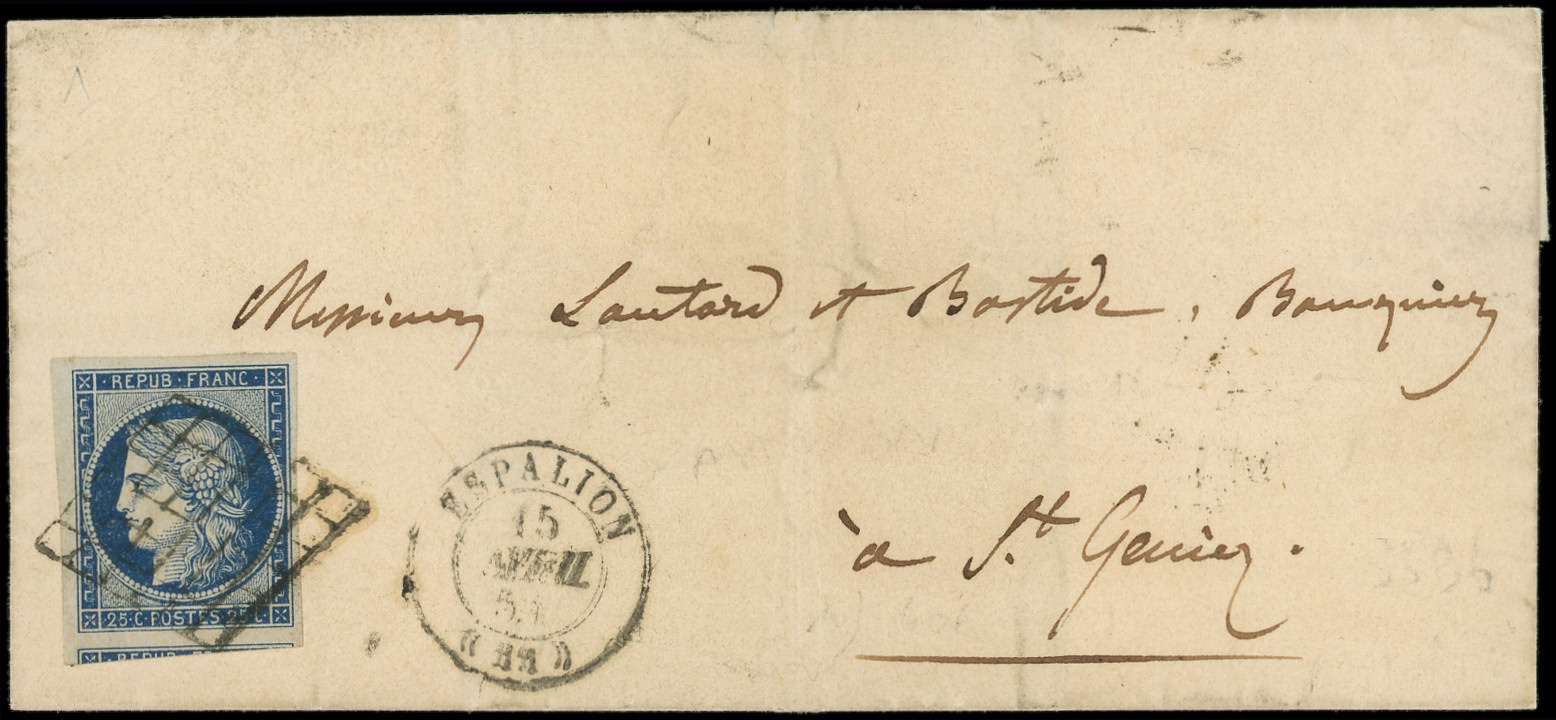 Messieurs Lautard et Bastide, Banquiers
à St. Geniez.
· REPUB · FRANC ·
25 · C · POSTES · 25 · C
REPUB FRANC
ESPALION
15
AVRIL